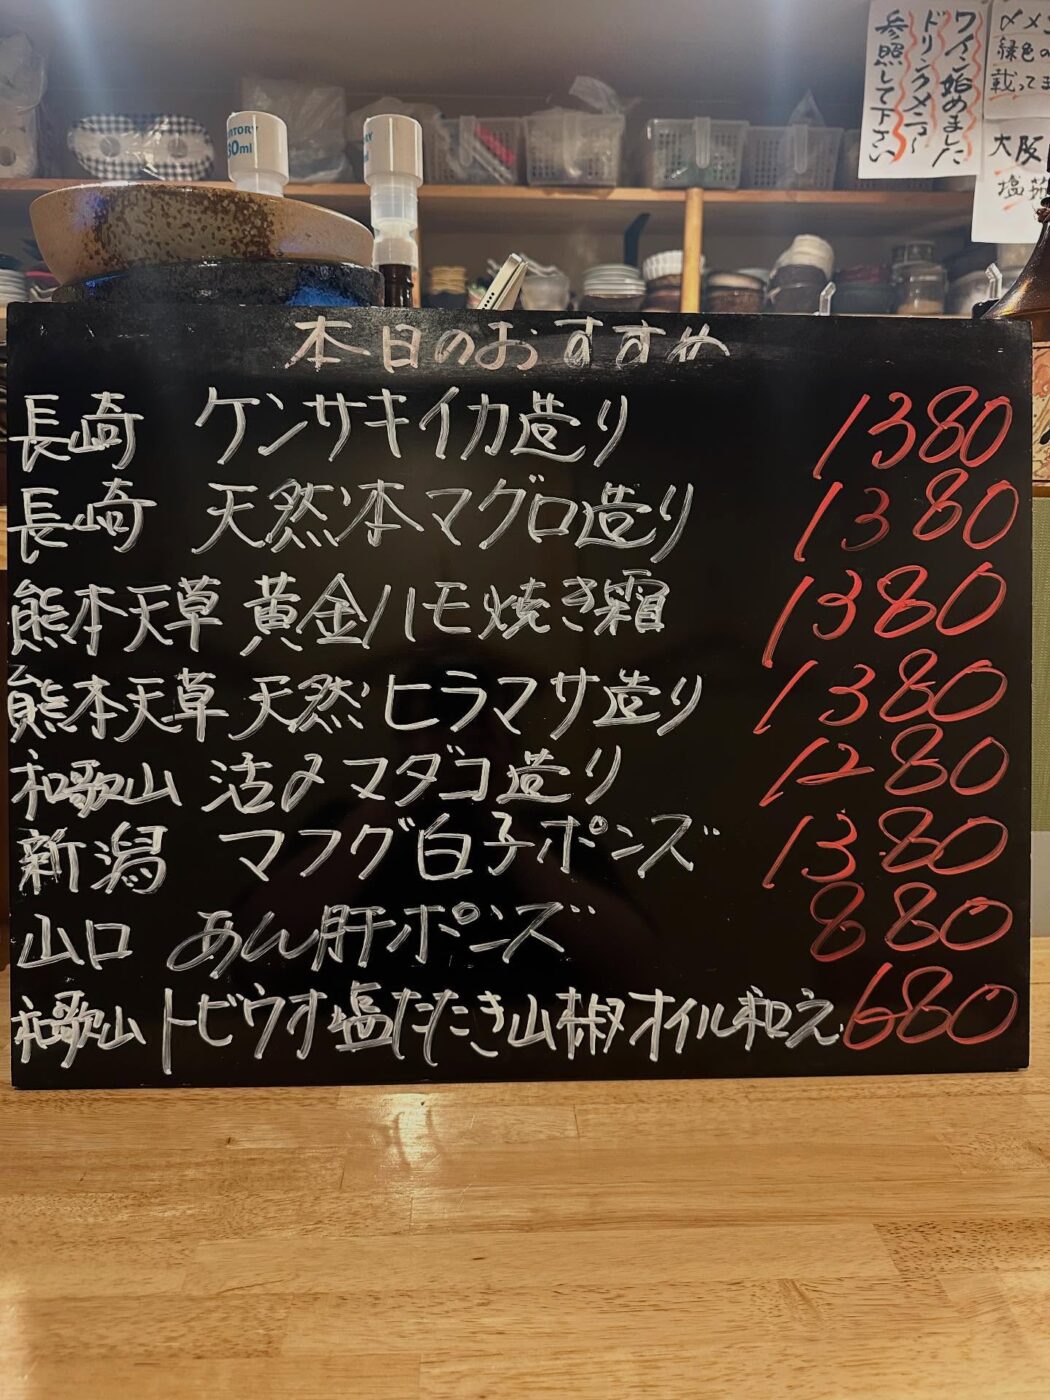 ワイン始めました
ドリンクメニュー
参照して下さい
〆メニ
緑色の
載ってま
大阪
塩
TORY
30ml
本日のおすすめ
長崎 ケンサキイカ造り 1380
長崎 天然本マグロ造り 1380
熊本天草 黄金ハモ焼き霜 1380
熊本天草 天然ヒラマサ造り 1380
和歌山 活〆マダコ造り 1280
新潟 マフグ白子ポンズ 1380
山口 あん肝ポンズ 880
和歌山 トビウオ塩たたき山椒オイル和え 680